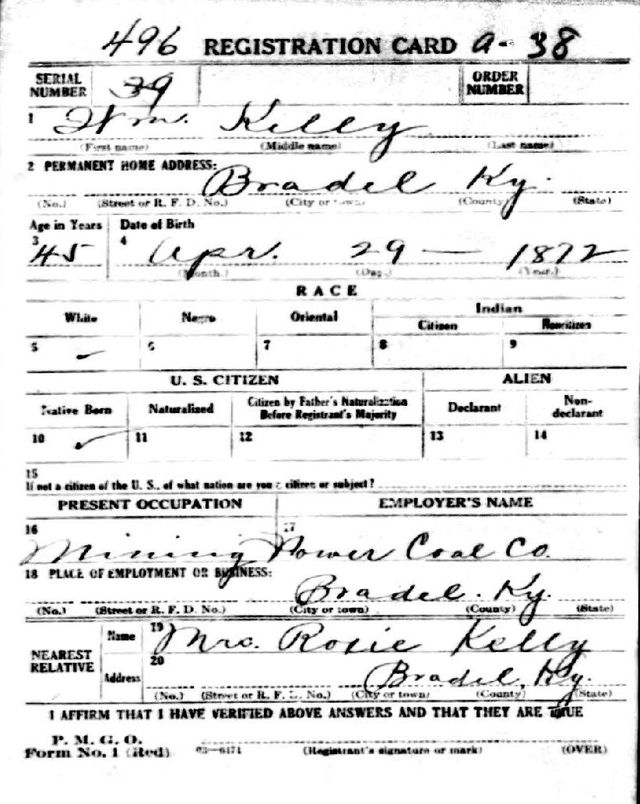 496 REGISTRATION CARD a- 38
SERIAL NUMBER 39 ORDER NUMBER
1 Wm. Kelly
(First name) (Middle name) (Last name)
2 PERMANENT HOME ADDRESS: Bradel Ky.
(No.) (Street or R. F. D. No.) (City or town) (County) (State)
Age in Years Date of Birth
3 45 4 Apr. 29 — 1872
(Month.) (Day.) (Year.)
RACE
White Negro Oriental Indian
Citizen Noncitizen
5 ✓ 6 7 8 9
U. S. CITIZEN ALIEN
Native Born Naturalized Citizen by Father's Naturalization Before Registrant's Majority Declarant Non-declarant
10 ✓ 11 12 13 14
15
If not a citizen of the U. S., of what nation are you a citizen or subject?
PRESENT OCCUPATION EMPLOYER'S NAME
16 Mining 17 Power Coal Co.
18 PLACE OF EMPLOYMENT OR BUSINESS: Bradel. Ky.
(No.) (Street or R. F. D. No.) (City or town) (County) (State)
NEAREST RELATIVE
Name 19 Mrs. Rosie Kelly
Address 20 Bradel, Ky.
(No.) (Street or R. F. D. No.) (City or town) (County) (State)
I AFFIRM THAT I HAVE VERIFIED ABOVE ANSWERS AND THAT THEY ARE TRUE
P. M. G. O.
Form No. 1 (Red) 03-6171 (Registrant's signature or mark) (OVER)